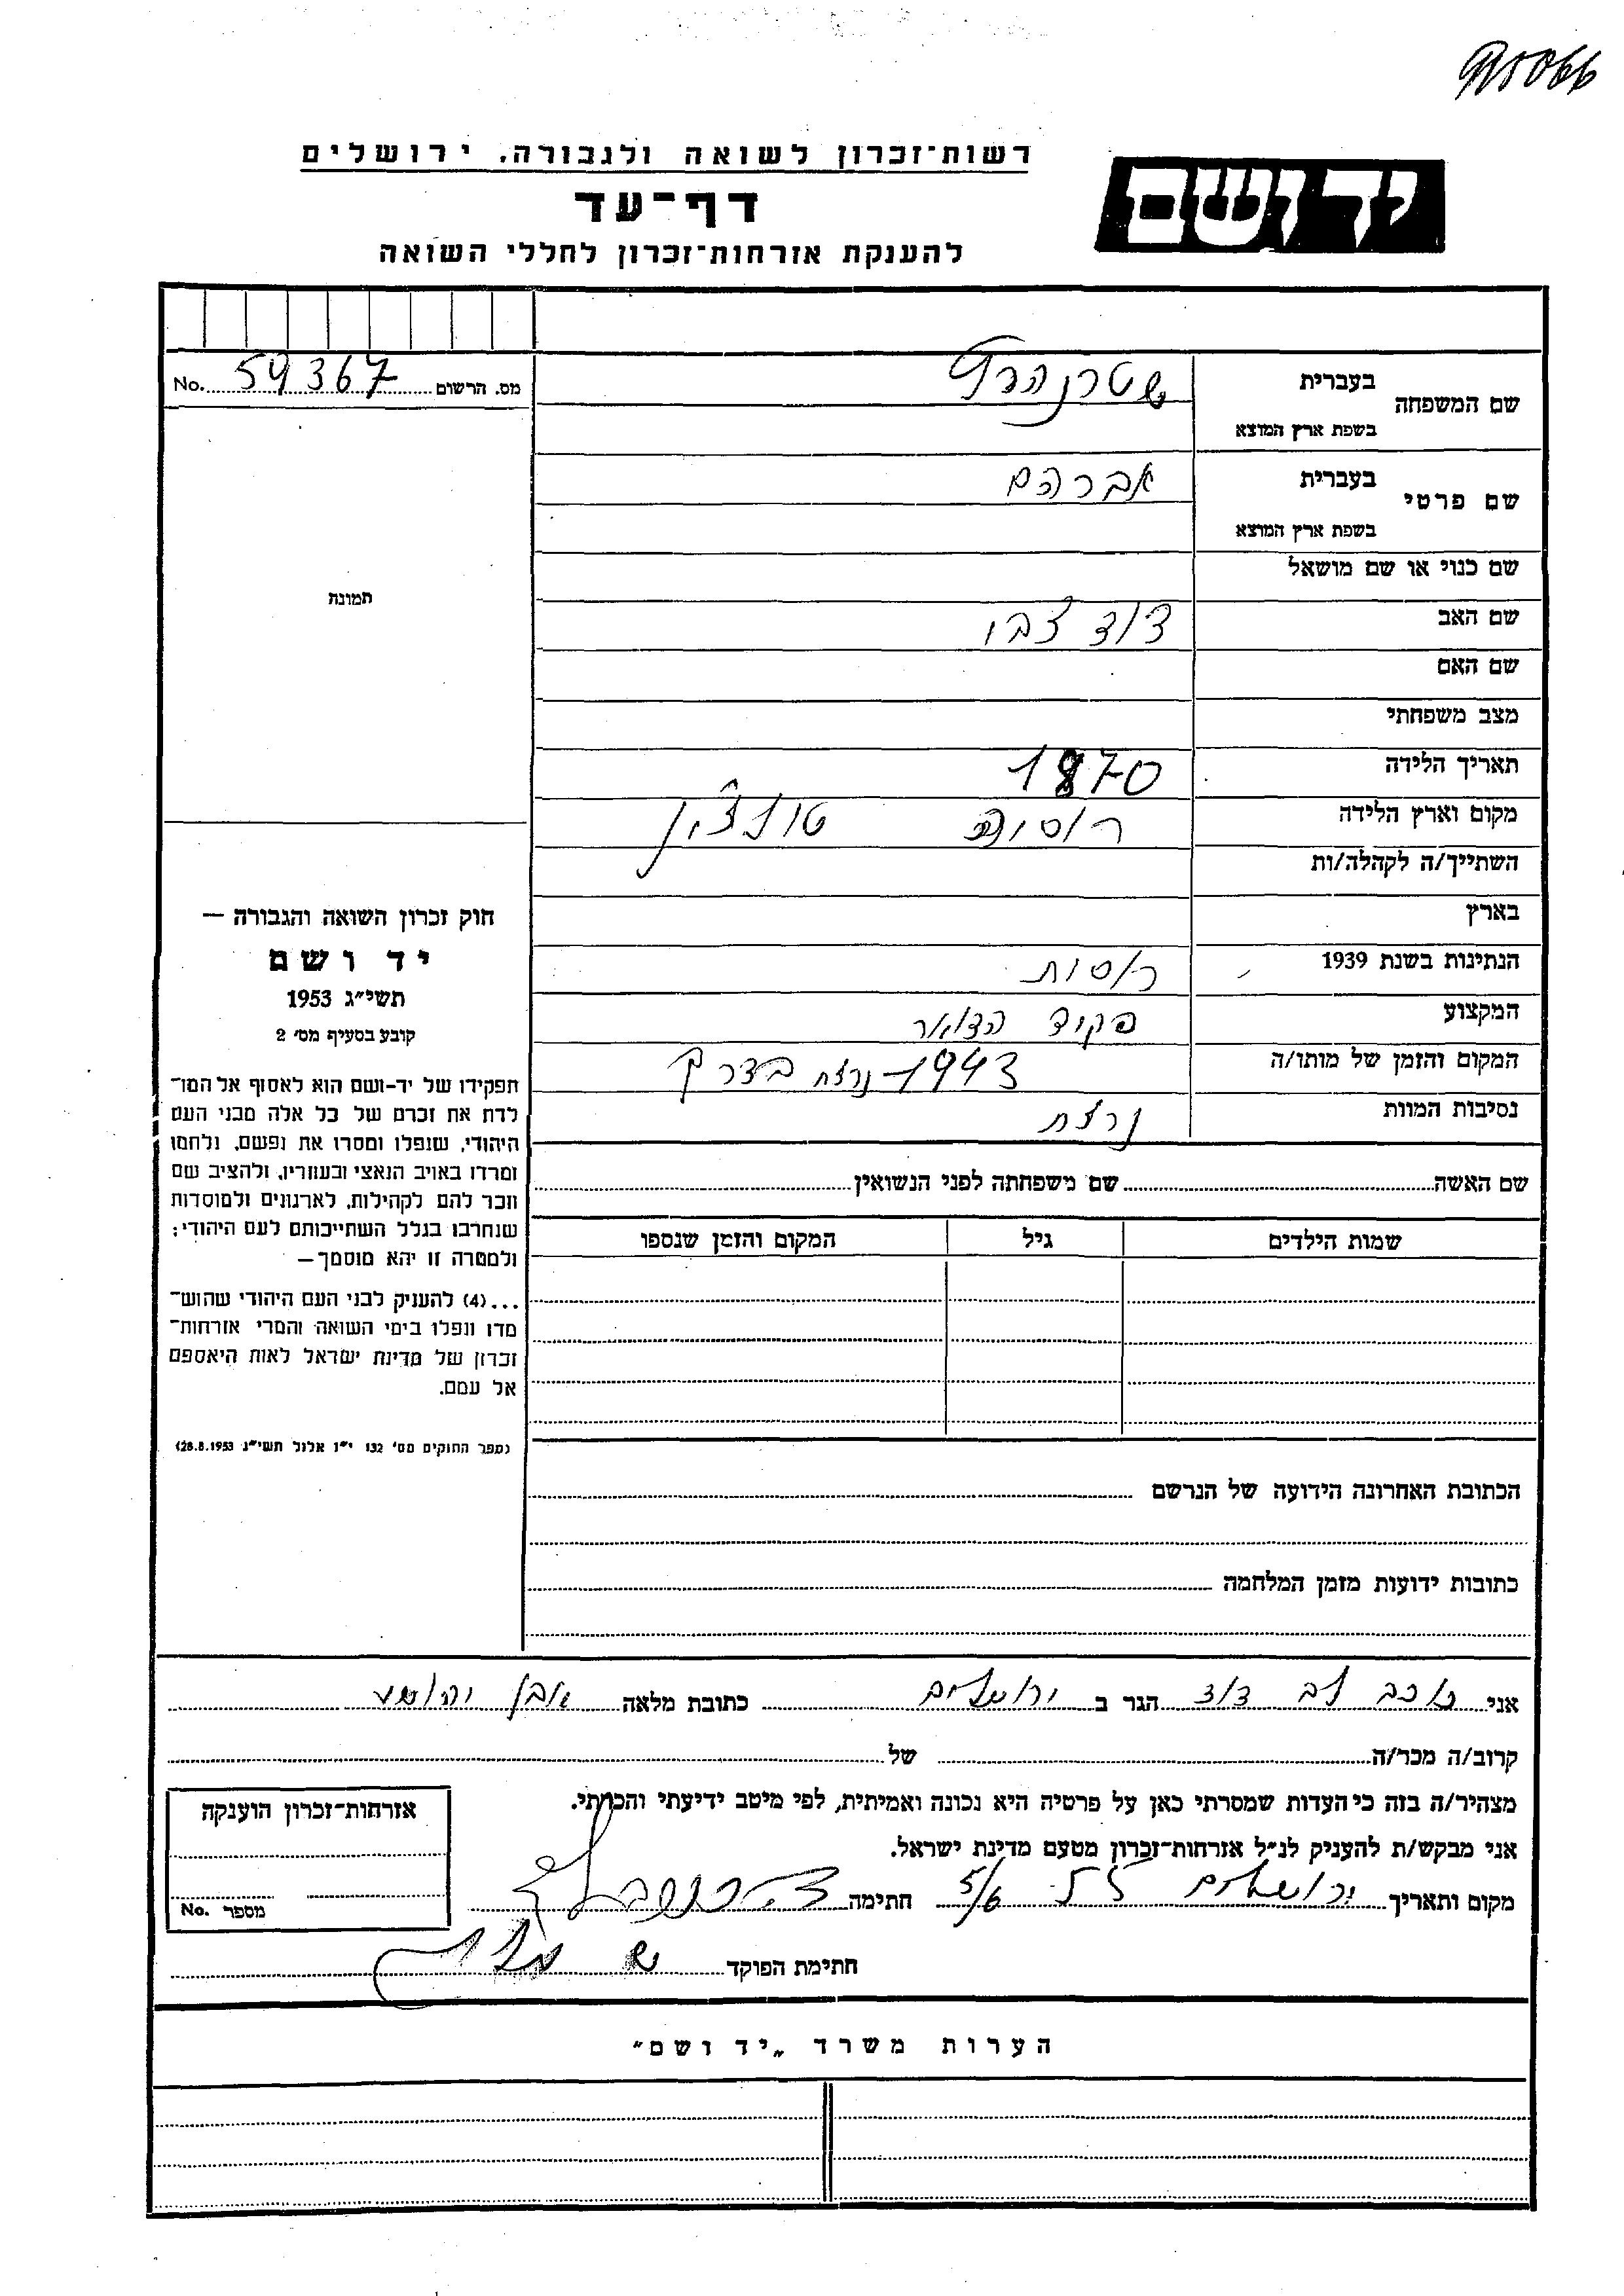 995066
רשות־זכרון לשואה ולגבורה, ירושלים
דף־עד
להענקת אזרחות־זכרון לחללי השואה
יד ושם
מס. הרשום 59367 No.
תמונה
שם המשפחה
בעברית שטרנהרץ
בשפת ארץ המוצא
שם פרטי
בעברית אברהם
בשפת ארץ המוצא
שם כנוי או שם מושאל
שם האב דוד צבי
שם האם
מצב משפחתי
תאריך הלידה 1870
מקום וארץ הלידה רוסיה טולצ'ין
השתייך/ה לקהלה/ות
בארץ
הנתינות בשנת 1939 רוסית
המקצוע פקיד הדואר
המקום והזמן של מותו/ה 1943 נרצח בדרך
נסיבות המוות נרצח
שם האשה שם משפחתה לפני הנשואין
שמות הילדים גיל המקום והזמן שנספו
חוק זכרון השואה והגבורה —
יד ושם
תשי״ג 1953
קובע בסעיף מס׳ 2
תפקידו של יד-ושם הוא לאסוף אל המו־
לדת את זכרם של כל אלה מבני העם
היהודי, שנפלו ומסרו את נפשם, נלחמו
ומרדו באויב הנאצי ובעוזריו, ולהציב שם
וזכר להם לקהילות, לארגונים ולמוסדות
שנחרבו בגלל השתייכותם לעם היהודי;
ולמטרה זו יהא מוסמך—
...(4) להעניק לבני העם היהודי שהוש־
מדו ונפלו בימי השואה והמרי אזרחות־
זכרון של מדינת ישראל לאות היאספם
אל עמם.
(ספר החוקים מס׳ 132 י״ז אלול תשי״ג 28.8.1953)
הכתובת האחרונה הידועה של הנרשם
כתובות ידועות מזמן המלחמה
אני דוד הגר ב ירושלים כתובת מלאה אבן יהושע
קרוב/ה מכר/ה של
מצהיר/ה בזה כי העדות שמסרתי כאן על פרטיה היא נכונה ואמיתית, לפי מיטב ידיעתי והכרתי.
אני מבקש/ת להעניק לנ״ל אזרחות־זכרון מטעם מדינת ישראל.
מקום ותאריך ירושלים 5/6 חתימה
חתימת הפוקד
אזרחות־זכרון הוענקה
מספר No.
הערות משרד „יד ושם״